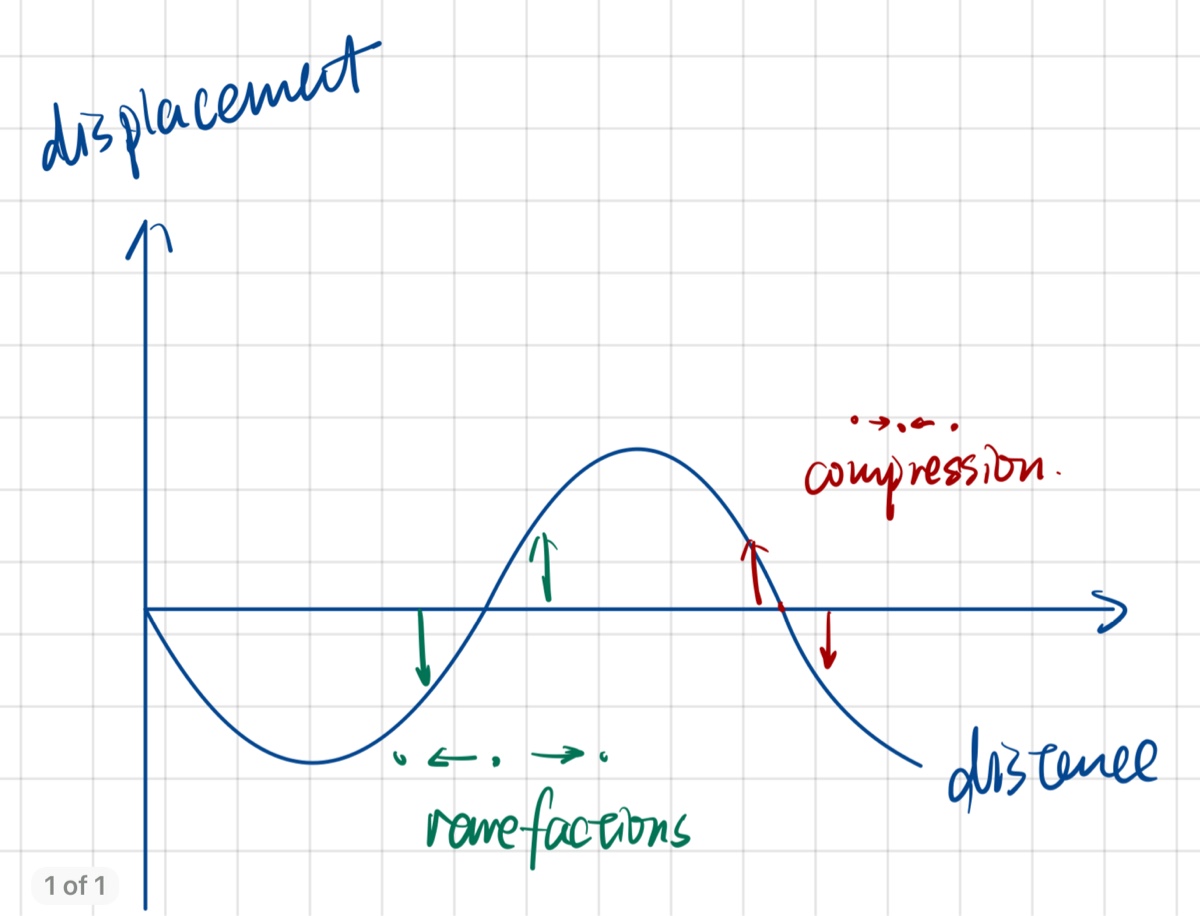 displacement
compression.
distance
rarefactions
1 of 1